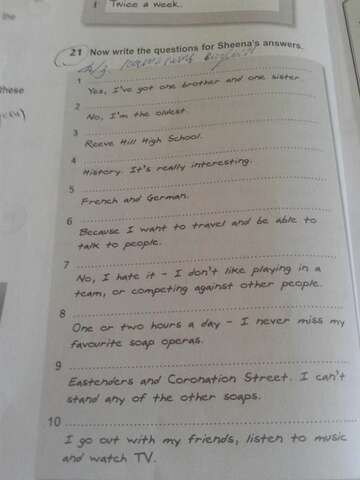 1 Twice a week.
the
21 Now write the questions for Sheena's answers.
these
1
Yes, I've got one brother and one sister.
2
No, I'm the oldest.
3
Reeve Hill High School.
4
History. It's really interesting.
5
French and German.
6
Because I want to travel and be able to
talk to people.
7
No, I hate it – I don't like playing in a
team, or competing against other people.
8
One or two hours a day – I never miss my
favourite soap operas.
9
Eastenders and Coronation Street. I can't
stand any of the other soaps.
10
I go out with my friends, listen to music
and watch TV.